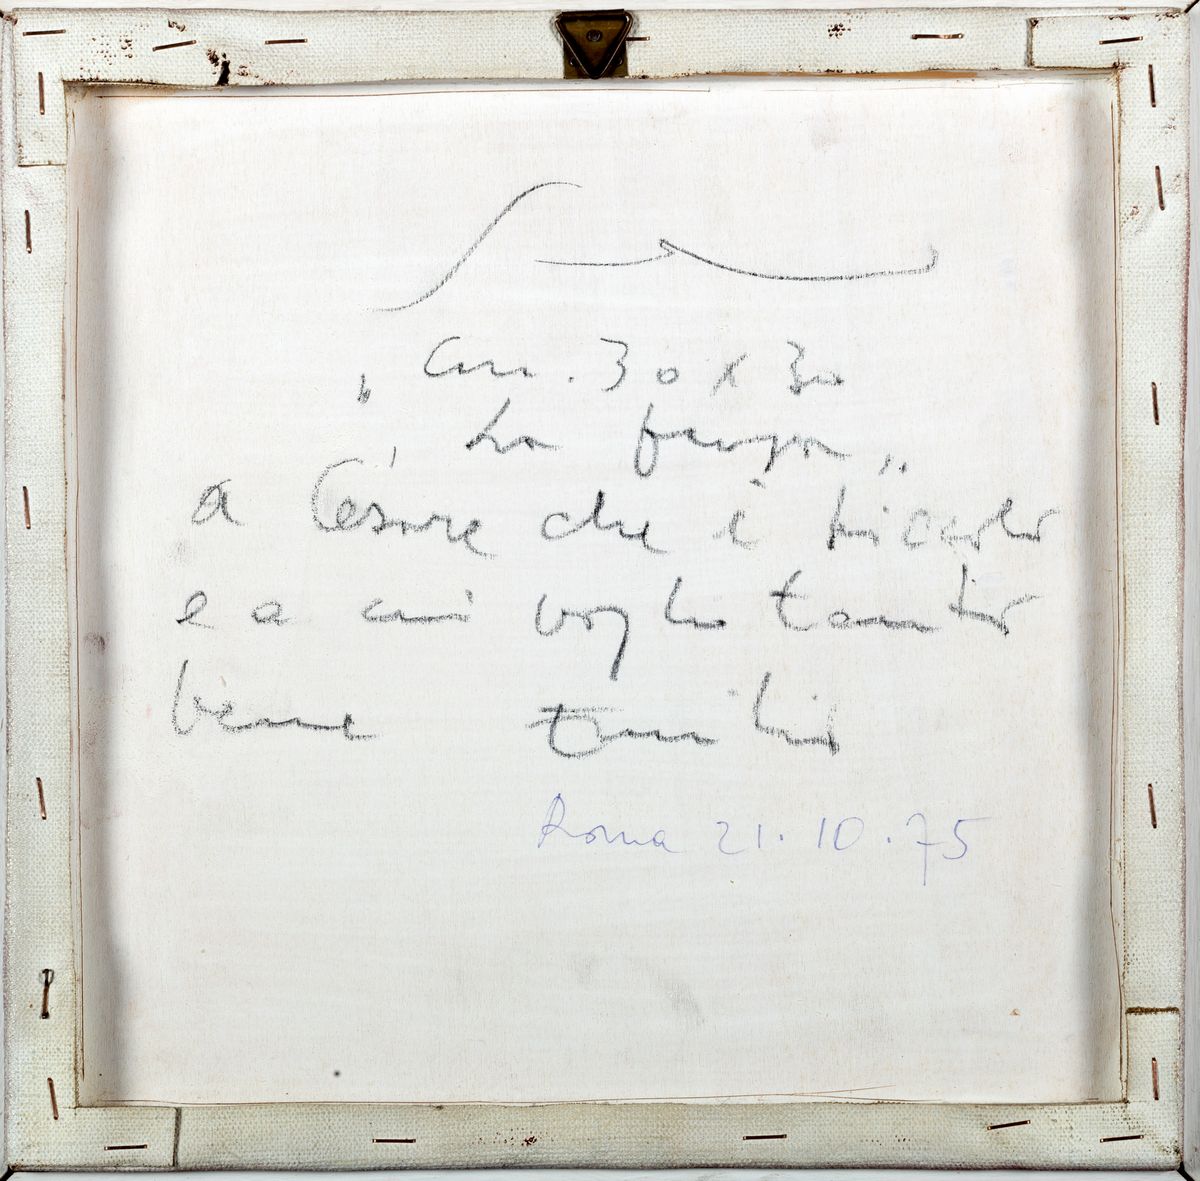 cm. 30 x 30
„ La fuga „
a Cesare che è piccolo
e a cui voglio tanto
bene
Roma 21.10.75